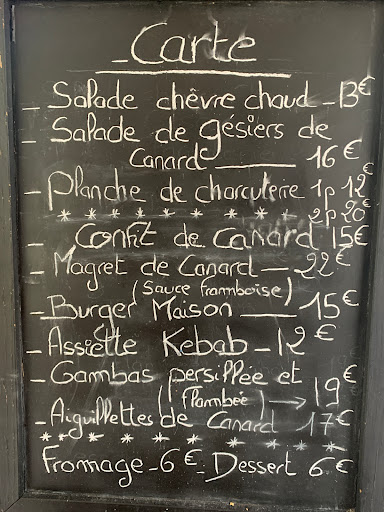 - Carte
- Salade chêvre chaud - 13€
- Salade de gésiers de
Canard — 16€
- Planche de charcuterie 1p 12€
* * * * * * * * * * 2p 20€
- Confit de Canard 15€
- Magret de Canard — 22€
(Sauce framboise)
- Burger Maison — 15€
- Assiette Kebab - 12€
- Gambas persillée et
(Flambée) → 19€
- Aiguillettes de Canard 17€
* * * * * * * * * *
Fromage - 6€ - Dessert 6€